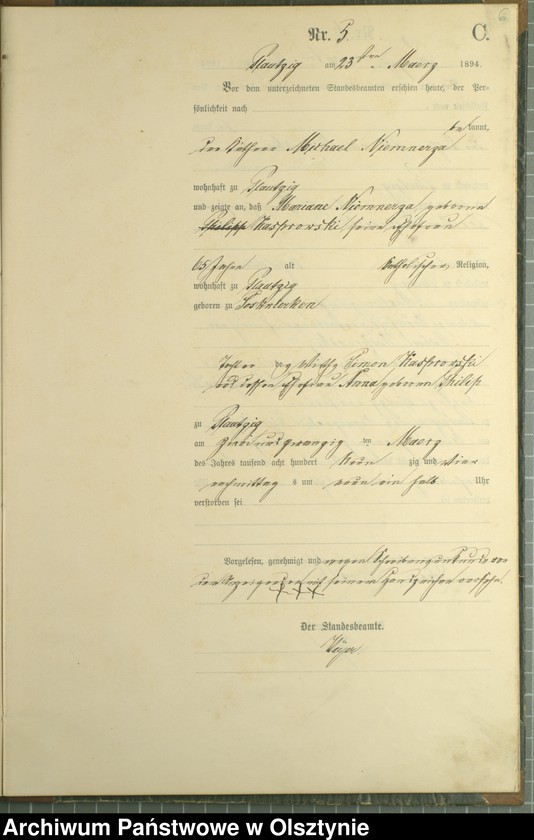 6
Nr. 5 C.
Plautzig am 23ten Maerz 1894.
Vor dem unterzeichneten Standesbeamten erschien heute, der Per-
sönlichkeit nach
bekannt,
der Michael Niemnerza
wohnhaft zu Plautzig
und zeigte an, daß Mariane Niemnerza geborene
Philipp Kasprowski seine Ehefrau
65 Jahre alt katholischer Religion,
wohnhaft zu Plautzig
geboren zu
Tochter Simon Kasprowski
und dessen Ehefrau Anna geborene Philip
zu Plautzig
am zwei und zwanzig ten Maerz
des Jahres tausend acht hundert neun zig und vier
nachmittag s um neun ein halb Uhr
verstorben sei
Vorgelesen, genehmigt und wegen Schreibensunkunde von
dem Anzeigenden mit seinem Handzeichen versehen.
+++
Der Standesbeamte.
Archiwum Państwowe w Olsztynie